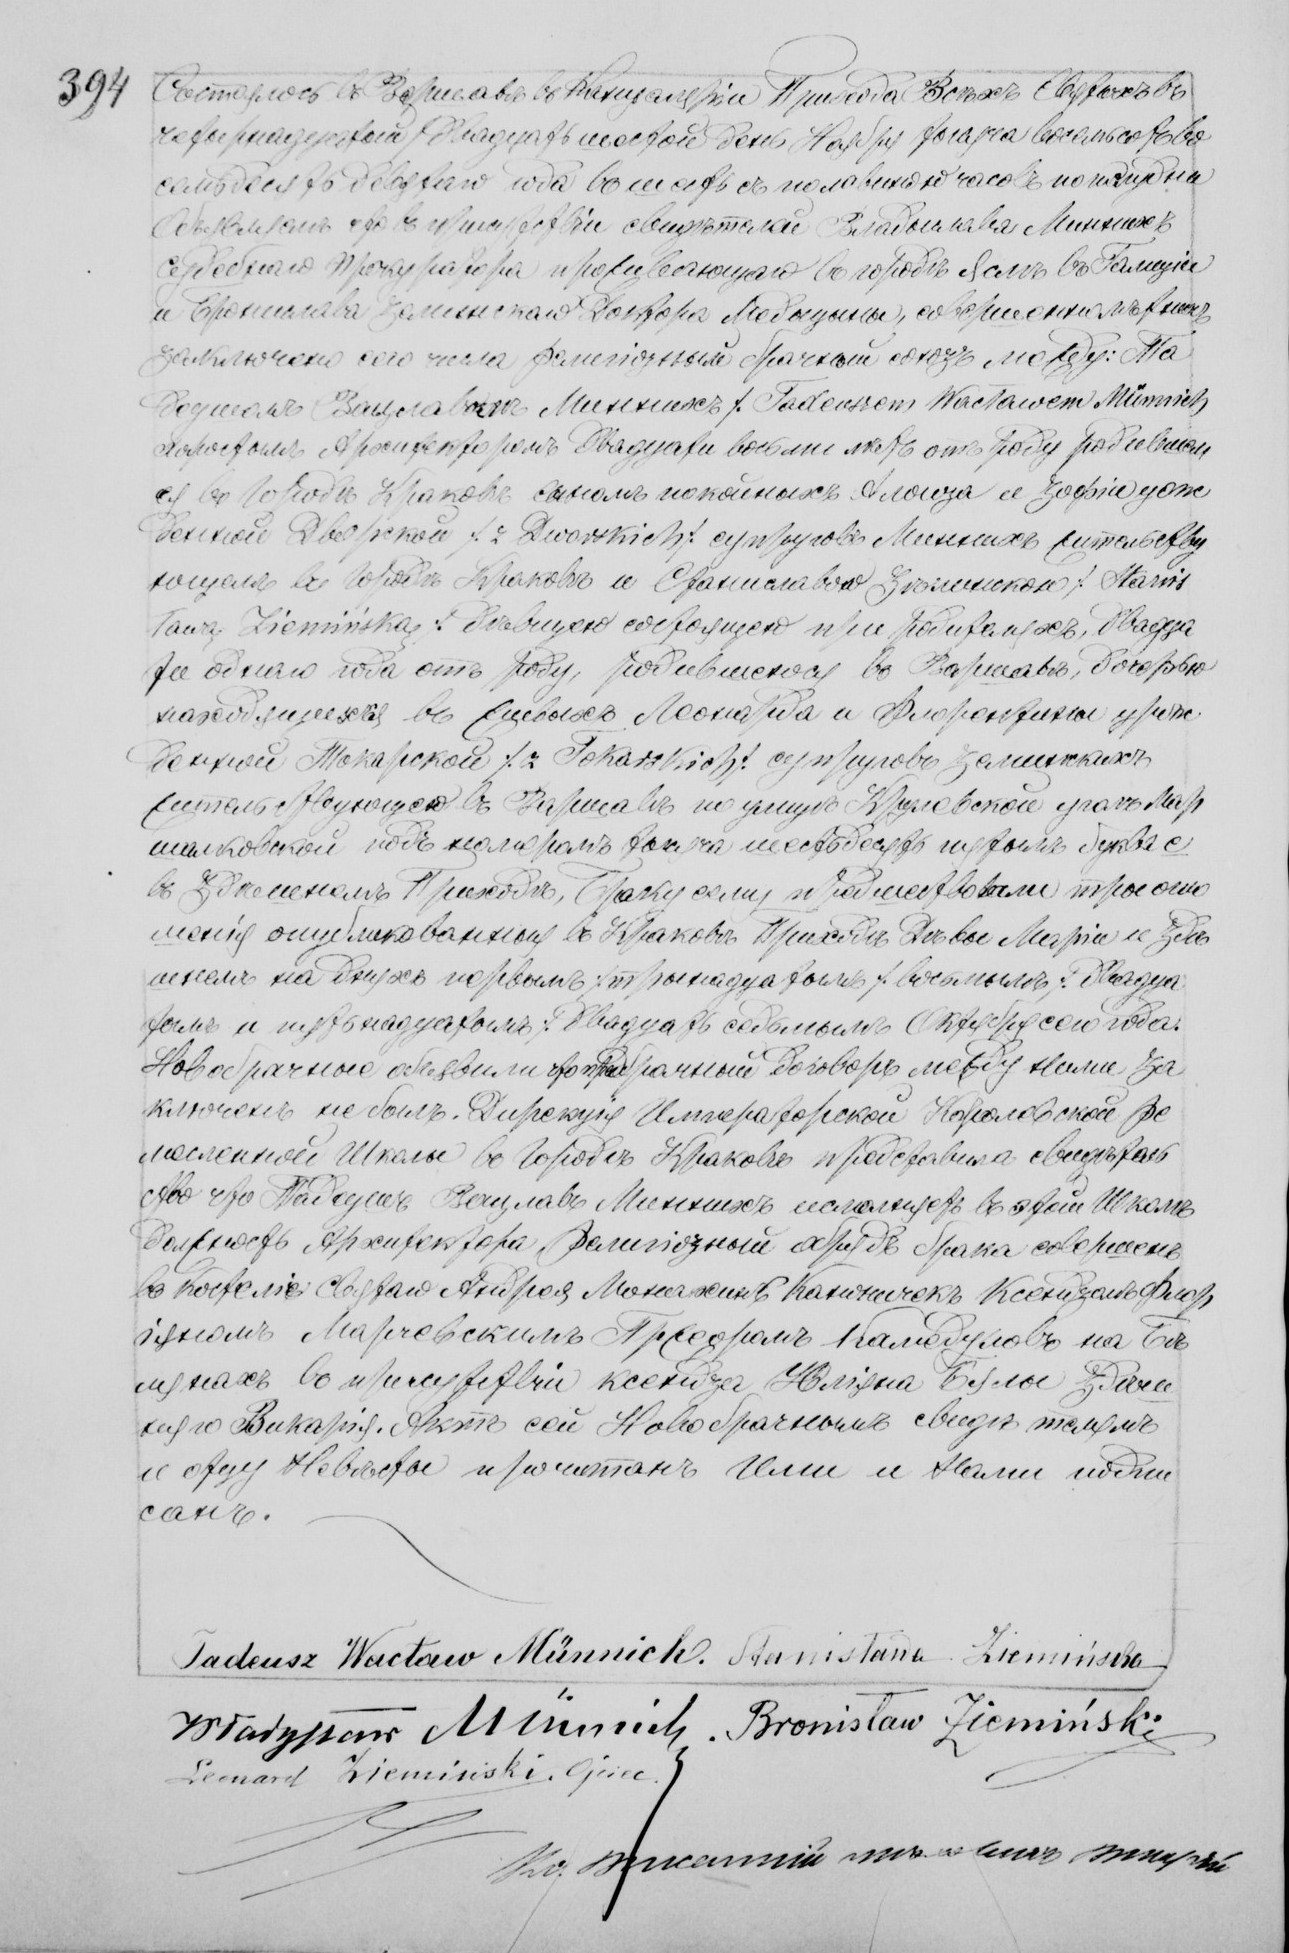 394
Состоялось въ Варшавѣ въ Канцеляріи Прихода Всѣхъ Святыхъ въ
четырнадцатый /Двадцать шестой день Ноября тысяча восемьсотъ во
семьдесятъ девятаго года въ шесть съ половиною часовъ пополудни
Объявляемъ что въ присутствіи свидѣтелей Владыслава Миннихъ
судебнаго прокуратора проживающаго въ городѣ Яслѣ въ Галиціи
и Бронислава Земинскаго Доктора Медыцины, совершеннолѣтнихъ
заключенъ сего числа религіозный брачный союзъ между: Та
деушемъ Вацлавомъ Миннихъ /: Tadeuszem Wacławem Münnich
холостымъ Архитекторомъ двадцати восьми лѣтъ отъ роду родившим
ся въ городѣ Краковѣ сыномъ покойныхъ Алоиза и Зофіи урож
денной Дворской /: z Dworskich /: супруговъ Миннихъ жительству
ющемъ въ городѣ Краковѣ и Станиславою Земинскою /: Stanis
ławą Ziemińską /: дѣвицею состоящею при родителяхъ, двадца
ти одного года отъ роду, родившеюся въ Варшавѣ, дочерью
находящихся въ живыхъ Леонарда и Флорентины урож
денной Токарской /: z Tokarskich /: супруговъ Земинскихъ
жительствующею въ Варшавѣ по улицѣ Круловской уголъ Мар
шалковской подъ номеромъ тысяча шестьдесятъ пятымъ буква с
въ Здѣшнемъ Приходѣ, Браку сему предшествовали три огла
шенія опубликованныя въ Краковѣ Приходѣ Дѣвы Маріи и Здѣ
шнемъ на дняхъ первымъ /: тринадцатымъ /: восьмымъ /: двадца
тымъ и пятнадцатымъ /: двадцать седьмымъ Октября сего года.
Новобрачные объявили что предбрачный договоръ между ними за
ключенъ не былъ. Дирекція Императорской Королевской Ре
месленной Школы въ городѣ Краковѣ представила свидѣтель
ство что Тадеушъ Вацлавъ Миннихъ исполняетъ въ этой Школѣ
должность Архитектора. Религіозный обрядъ брака совершенъ
въ Костеліе Святаго Андрея Монахинь Каноничекъ Ксендзомъ Флор
іяномъ Марчевскимъ Префоромъ Камедуловъ на Бѣ
лянахъ въ присутствіи ксендза Юліяна Бялы Здѣш
няго Викарія. Актъ сей Новобрачнымъ свидѣтелямъ
и отцу Невѣсты прочитанъ Ими и Нами подпи
санъ.
Tadeusz Wacław Münnich. Stanisława Ziemińska
Władysław Münnich. Bronisław Ziemiński
Leonard Ziemiński. Ojciec.